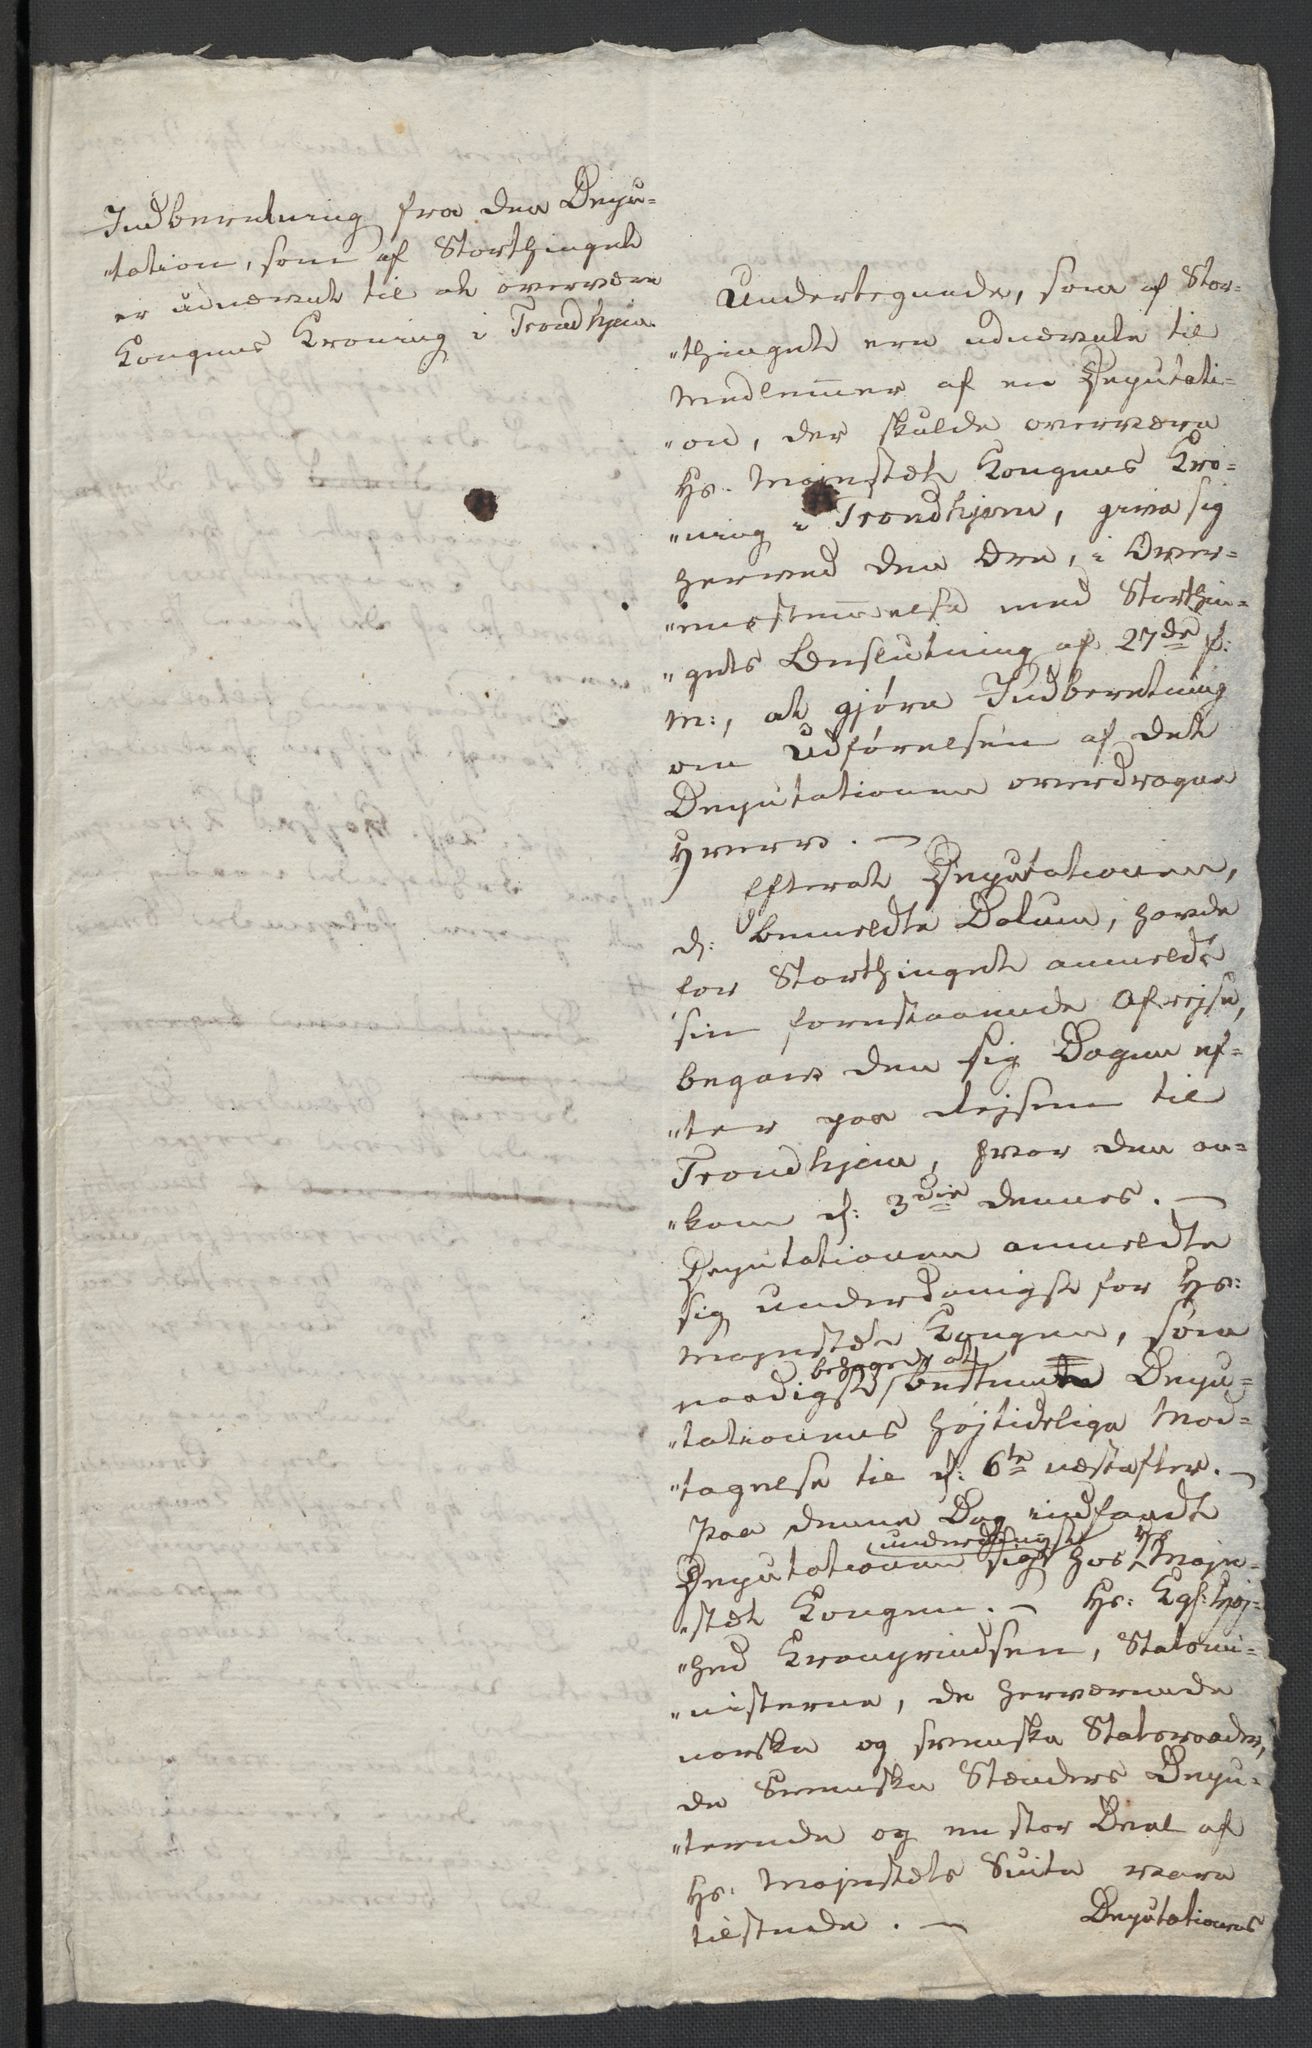 Indberetning fra den Depu-
"tation, som af Storthinget
er udnævnt til at overvære
Kongens Kroning i Trondhjem.
Undertegnede, som af Stor-
"thinget ere udnævnte til
Medlemmer af en Deputati-
"on, der skulde overvære
Hs. Majestæt Kongens Kro-
"ning i Trondhjem, give sig
herved den Ære, i Over-
"ensstemmelse med Storthin-
"gets Beslutning af 27de f:
M:, at gjøre Indberetning
om Udførelsen af det
Deputationen overdragne
Hverv. —
Efterat Deputationen,
d: bemeldte Datum, havde
for Storthinget anmeldt
sin forestaaende Afrejse,
begav den sig Dagen ef-
"ter paa Rejsen til
Trondhjem, hvor den an-
"kom d: 3die dennes. —
Deputationen anmeldte
sig underdanigst for Hs:
Majestæt Kongen, som
behagede at
naadigst bestemte Depu-
"tationens højtidelige Mod-
"tagelse til d: 6te næstefter. —
Paa denne Dag indfandt
underdanigst
Deputationen sig hos Hs Maje-
"stæt Kongen. — Hs: Kgl: Høj-
"hed Kronprindsen, Statsmi-
"nisterne, de herværende
norske og svenske Statsraader,
de Svenske Stænders Depu-
"terede og en stor Deel af
Hs. Majestæts Suite vare
tilstede. —
Deputationens